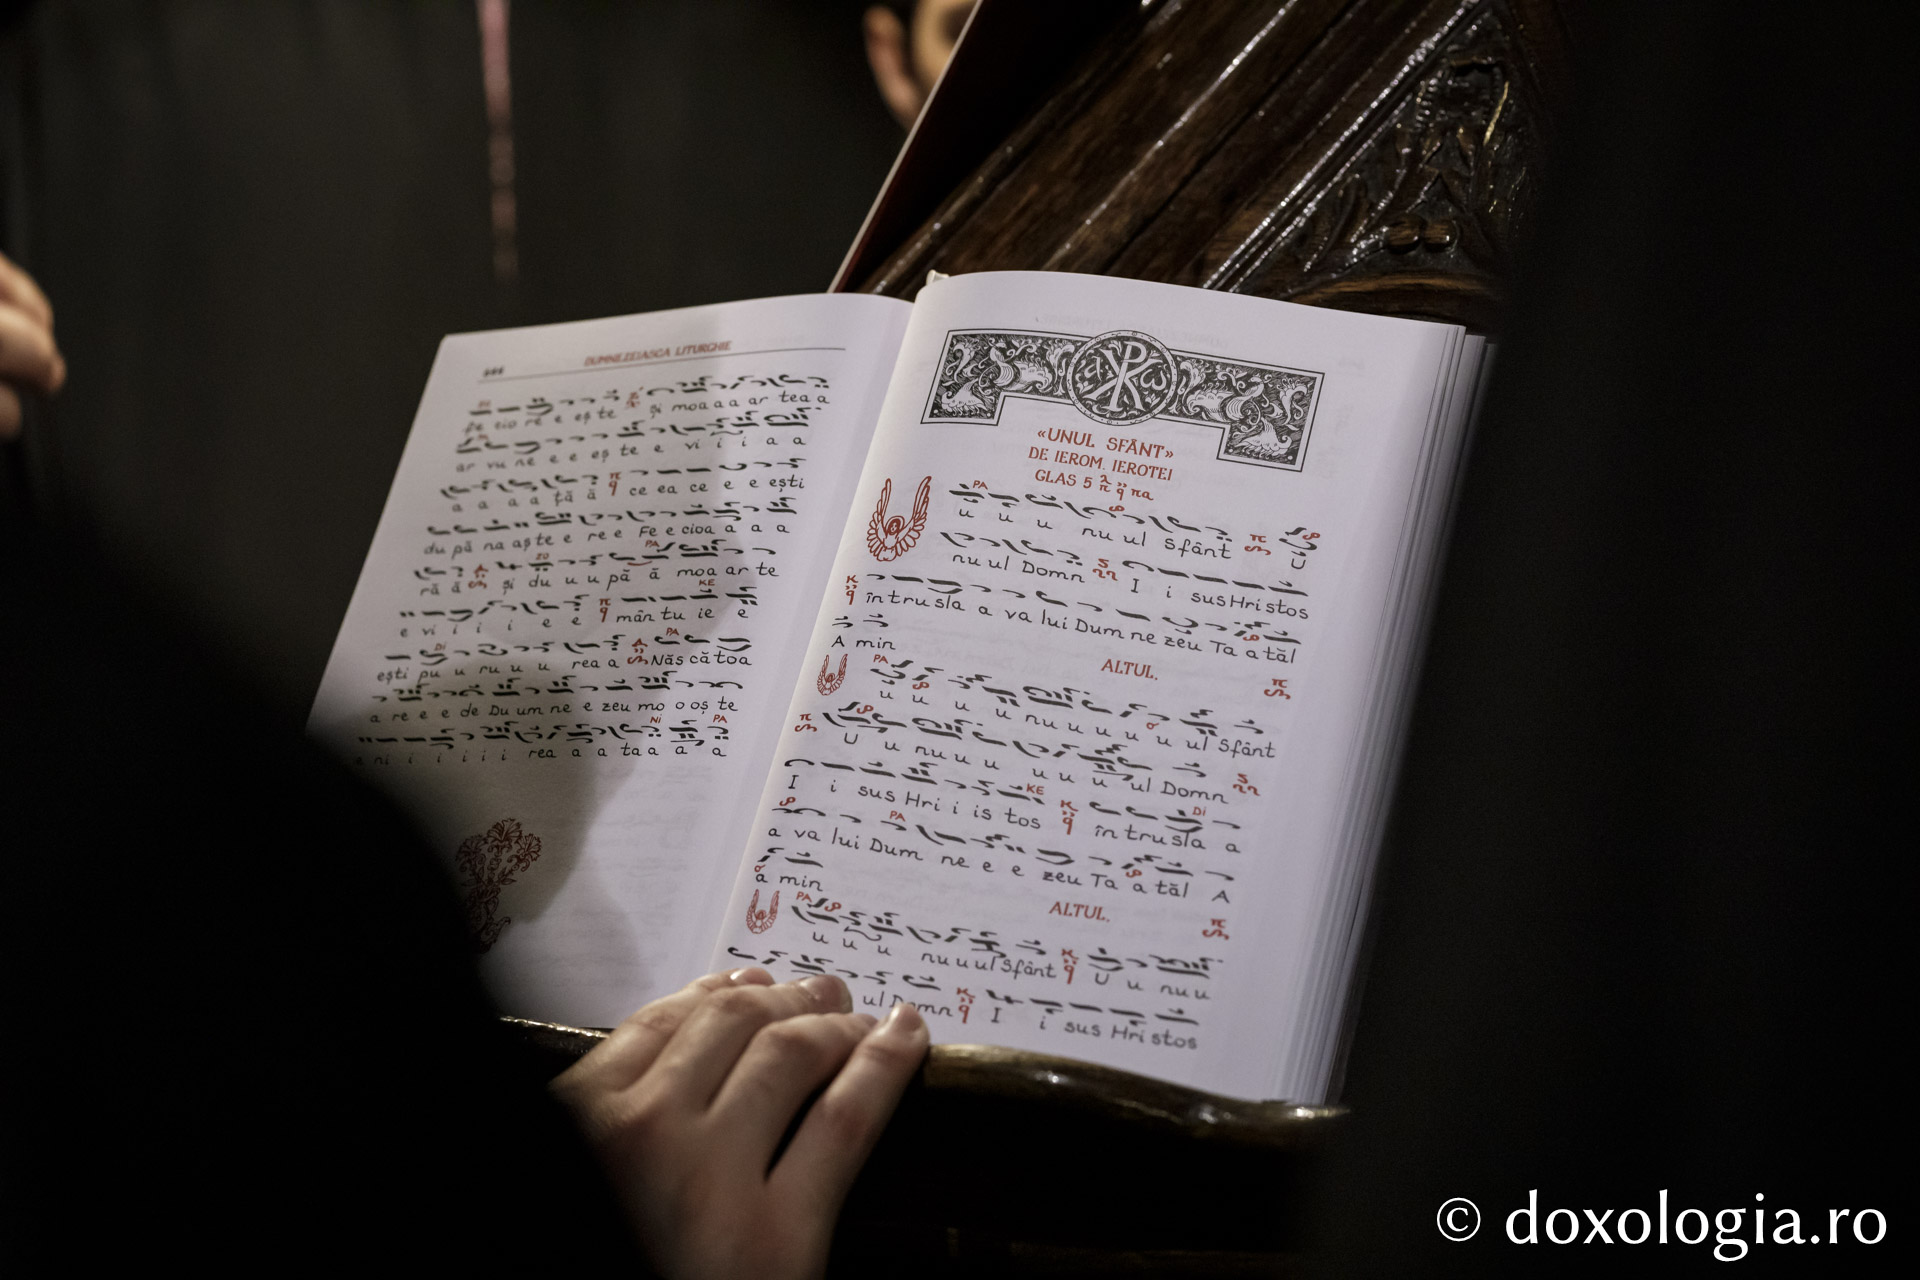 DUMNEZEIASCA LITURGHIE
fe cio re e eș te și moa a a ar tea a
ar vu ne e e eș te e vi i i a a
a a a a ță ă ce ea ce e e ești
du pă na aș te e re e Fe e cioa a a a
ră ă și du u u pă ă moa ar te
e vi i i i e e mân tu ie e
ești pu u ru u u rea a Năs că toa
a re e e de Du um ne e zeu mo o oș te
e ni i i i i i rea a a ta a a a
«UNUL SFÂNT»
DE IEROM. IEROTEI
GLAS 5
PA
u u u nu ul Sfânt U
nu ul Domn I i sus Hri stos
în tru sla a va lui Dum ne zeu Ta a tăl
A min
ALTUL.
PA
u u u u nu u u u u ul Sfânt
U u nu u u u u u ul Domn
I i sus Hri i is tos în tru sla a
a va lui Dum ne e e zeu Ta a tăl A
a min
ALTUL.
PA
u u u nu u ul Sfânt U u nu u
ul Domn I i sus Hri stos
© doxologia.ro